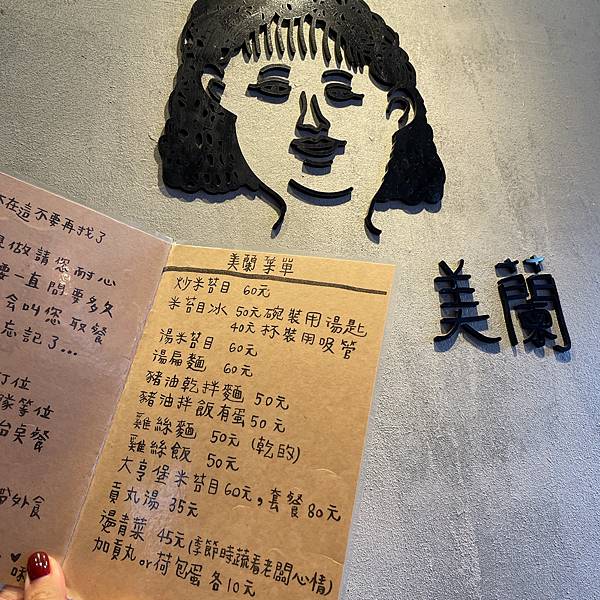 美蘭
不在這不要再找了
做請您耐心
要一直問要多久
會叫您取餐
忘記了...
訂位
隊等位
台吳餐
外食
美蘭菜單
炒米苔目 60元
米苔目冰 50元碗裝用湯匙
40元杯裝用吸管
湯米苔目 60元
湯扁麵 60元
豬油乾拌麵 50元
豬油拌飯有蛋50元
雞絲麵 50元(乾的)
雞絲飯 50元
大亨堡米苔目60元,套餐80元
貢丸湯 35元
燙青菜 45元(季節時蔬看老闆心情)
加貢丸or荷包蛋各10元